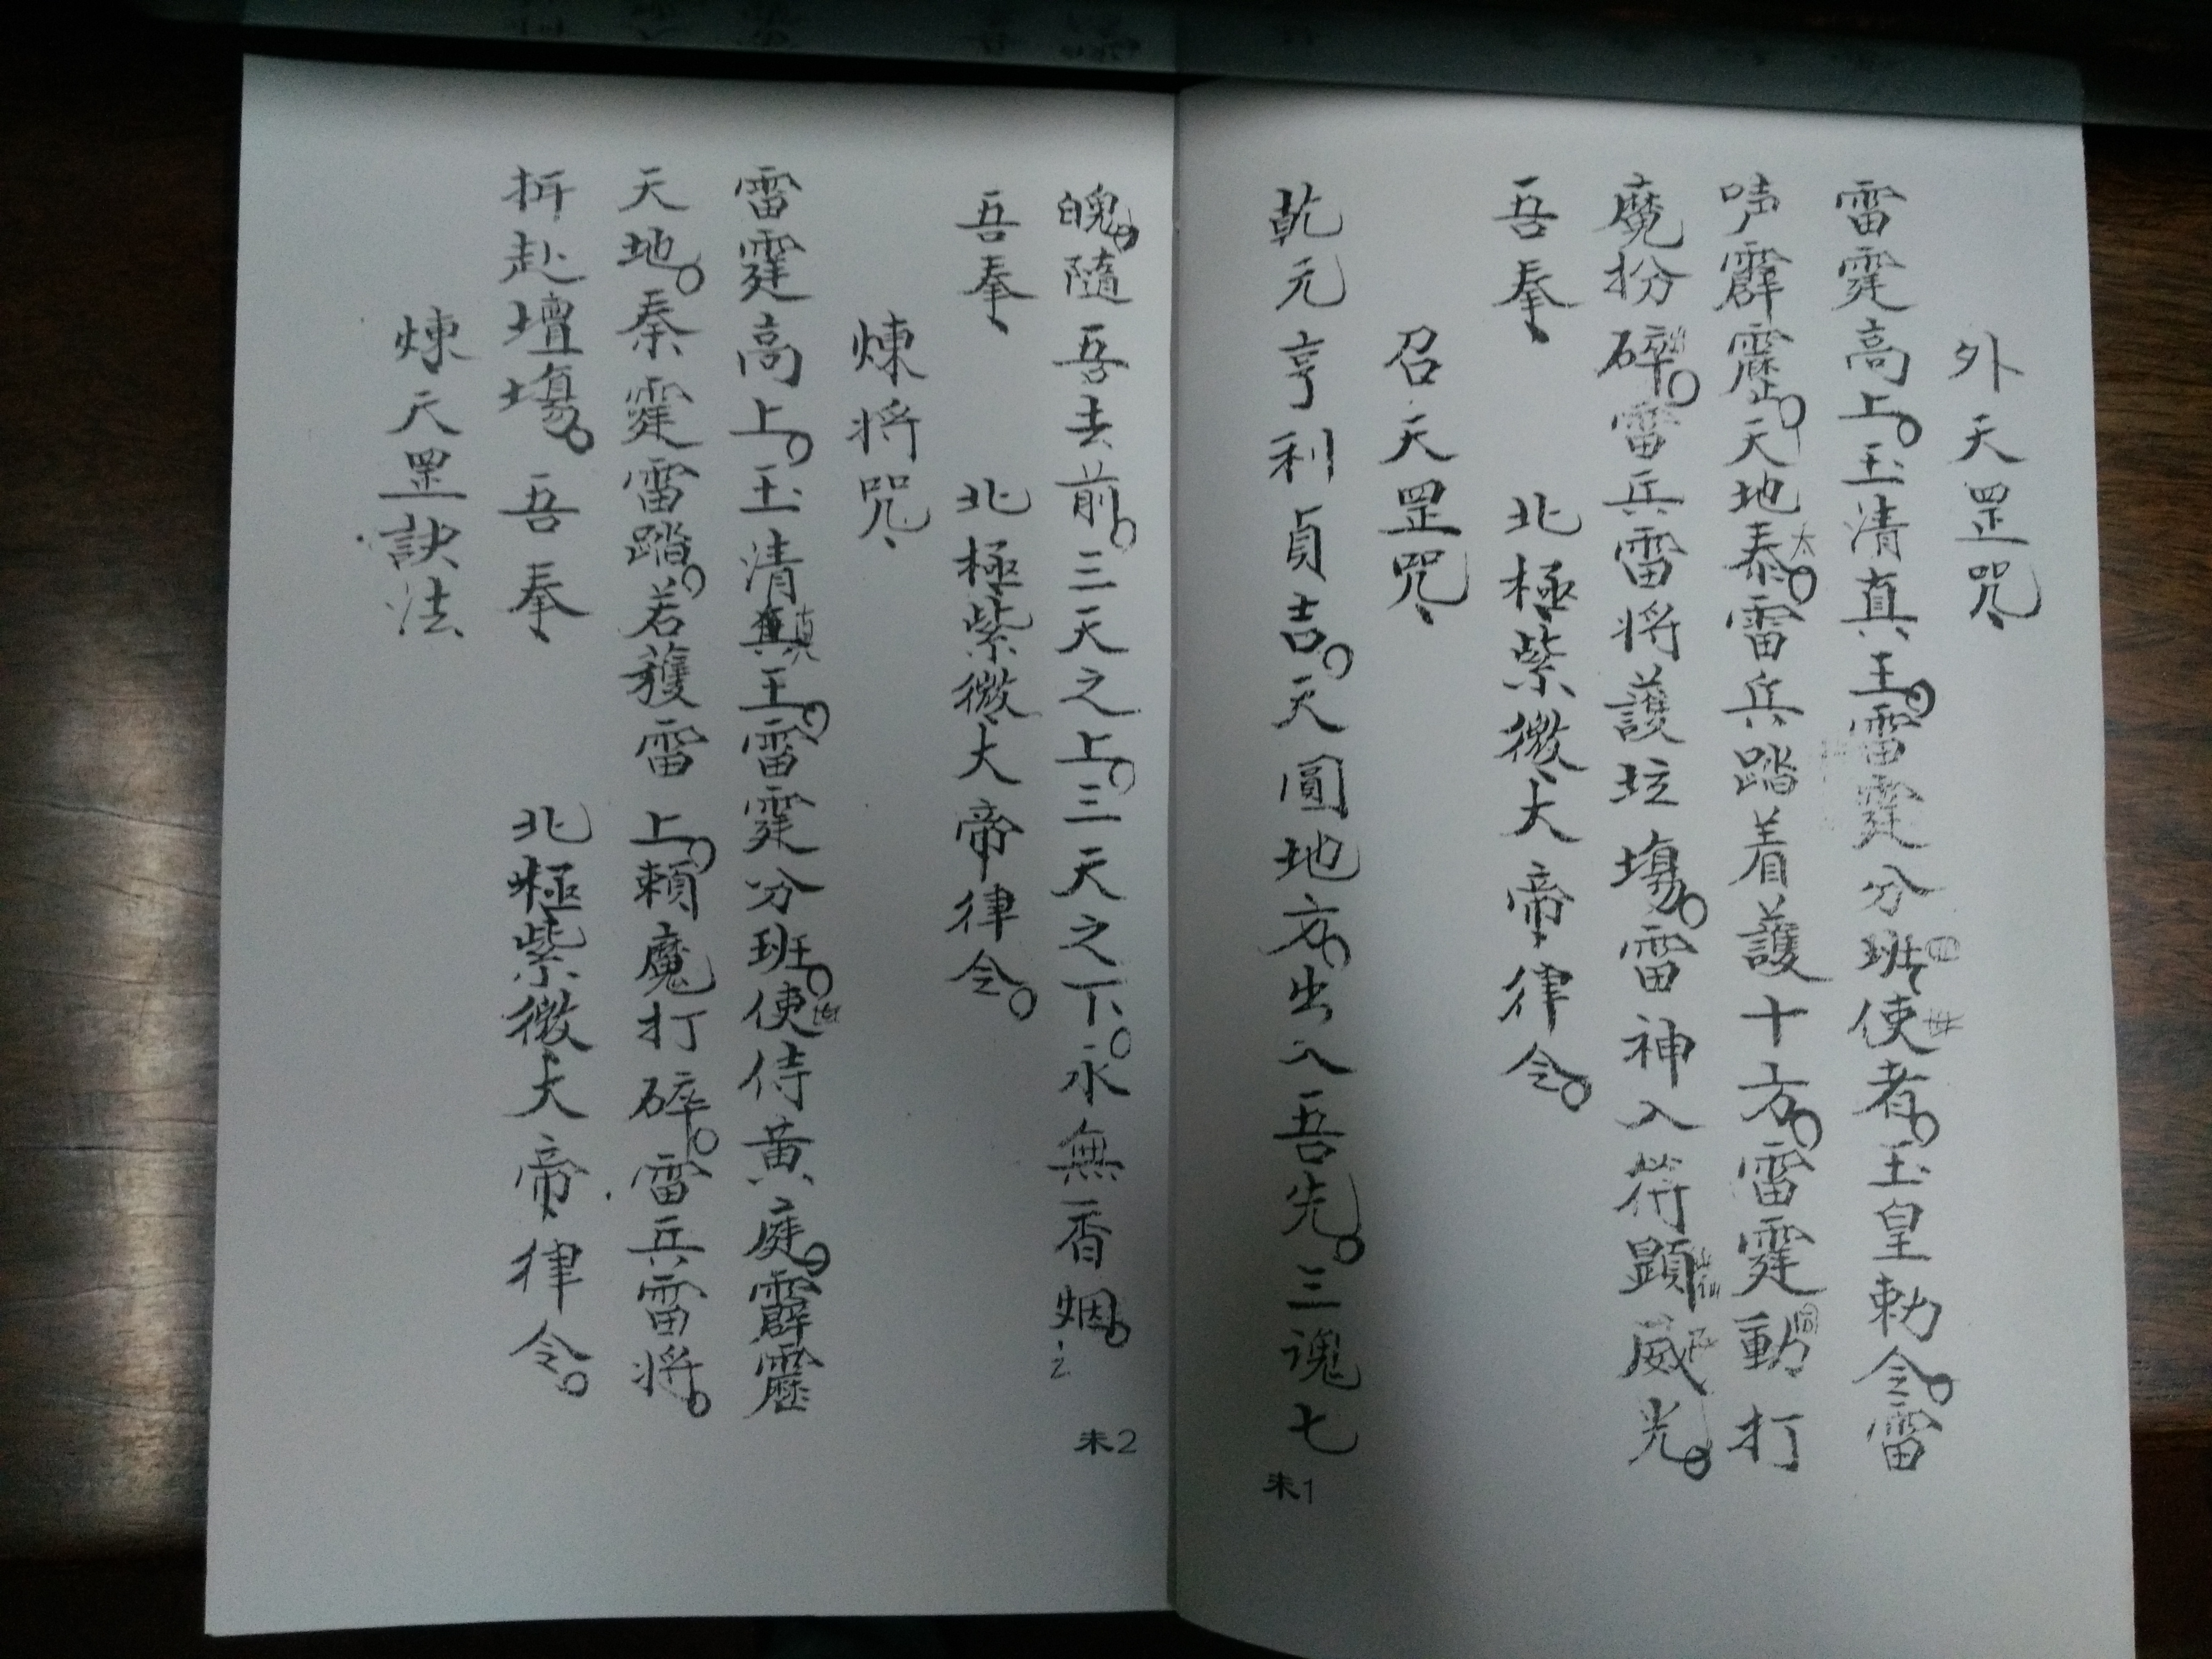 外天罡咒
雷霆高上。玉清真王。雷霆分班使者。玉皇勅令。雷
声霹靂。天地泰。雷兵踏着護十方。雷霆動打
魔扮碎。雷兵雷将護坛塲。雷神入符顕威光。
吾奉 北極紫微大帝律令。
召天罡咒
乾元亨利貞吉。天圓地方。出入吾先。三魂七
未1
魄。隨吾去前。三天之上。三天之下。永無香烟。
未2
吾奉 北極紫微大帝律令。
煉将咒
雷霆高上。玉清真王。雷霆分班。使侍黄庭。霹靂
天地。秦霆雷踏。若護雷上。賴魔打碎。雷兵雷将。
拆赴壇塲。吾奉 北極紫微大帝律令。
煉天罡訣法